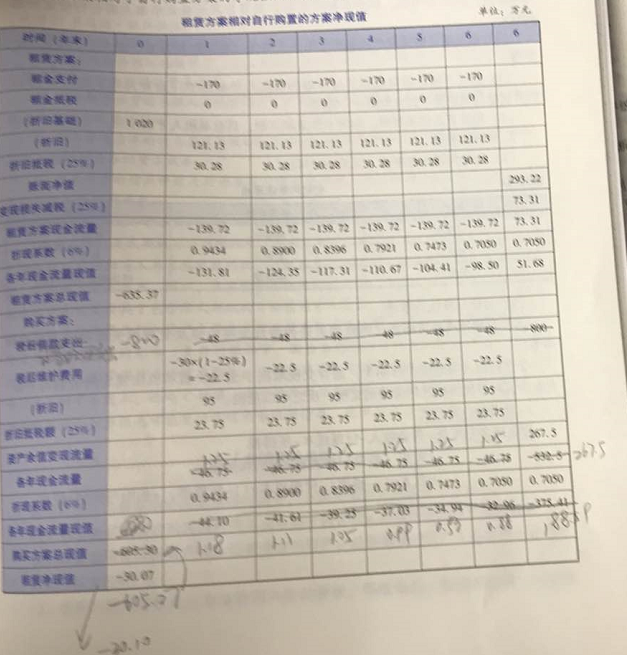 租赁方案相对自行购置的方案净现值
单位：万元
时间（年末） 0 1 2 3 4 5 6 6
租赁方案：
租金支付 -170 -170 -170 -170 -170 -170
租金抵税 0 0 0 0 0 0
（折旧基础） 1 020
（折旧） 121.13 121.13 121.13 121.13 121.13 121.13
折旧抵税（25%） 30.28 30.28 30.28 30.28 30.28 30.28
账面净值 293.22
变现损失减税（25%） 73.31
租赁方案现金流量 -139.72 -139.72 -139.72 -139.72 -139.72 -139.72 73.31
折现系数（6%） 0.9434 0.8900 0.8396 0.7921 0.7473 0.7050 0.7050
各年现金流量现值 -131.81 -124.35 -117.31 -110.67 -104.41 -98.50 51.68
租赁方案总现值 -635.37
购买方案：
税后借款支出 -800 -48 -48 -48 -48 -48 -48 -800
税后维护费用 -30×(1-25%)
= -22.5 -22.5 -22.5 -22.5 -22.5 -22.5
（折旧） 95 95 95 95 95 95
折旧抵税额（25%） 23.75 23.75 23.75 23.75 23.75 23.75
资产余值变现流量 267.5
1.25 1.25 1.25 1.25 1.25 1.25
各年现金流量 -46.75 -46.75 -46.75 -46.75 -46.75 -46.75 -532.5 267.5
折现系数（6%） 0.9434 0.8900 0.8396 0.7921 0.7473 0.7050 0.7050
各年现金流量现值 -44.10 -41.61 -39.25 -37.03 -34.94 -32.96 -375.41
1.18 1.11 1.05 0.99 0.88
购买方案总现值 -605.30
租赁净现值 -30.07
-30.10